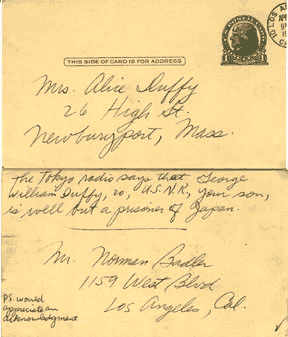 THIS SIDE OF CARD IS FOR ADDRESS
Mrs. Alice Duffy
26 High St.
Newburyport, Mass.
The Tokyo radio says that George
William Duffy, 20, U.S.N.R., your son,
is well but a prisoner of Japan.
Mr. Norman
1159 West Blvd
Los Angeles, Cal.
P.S. would
appreciate an
acknowledgment